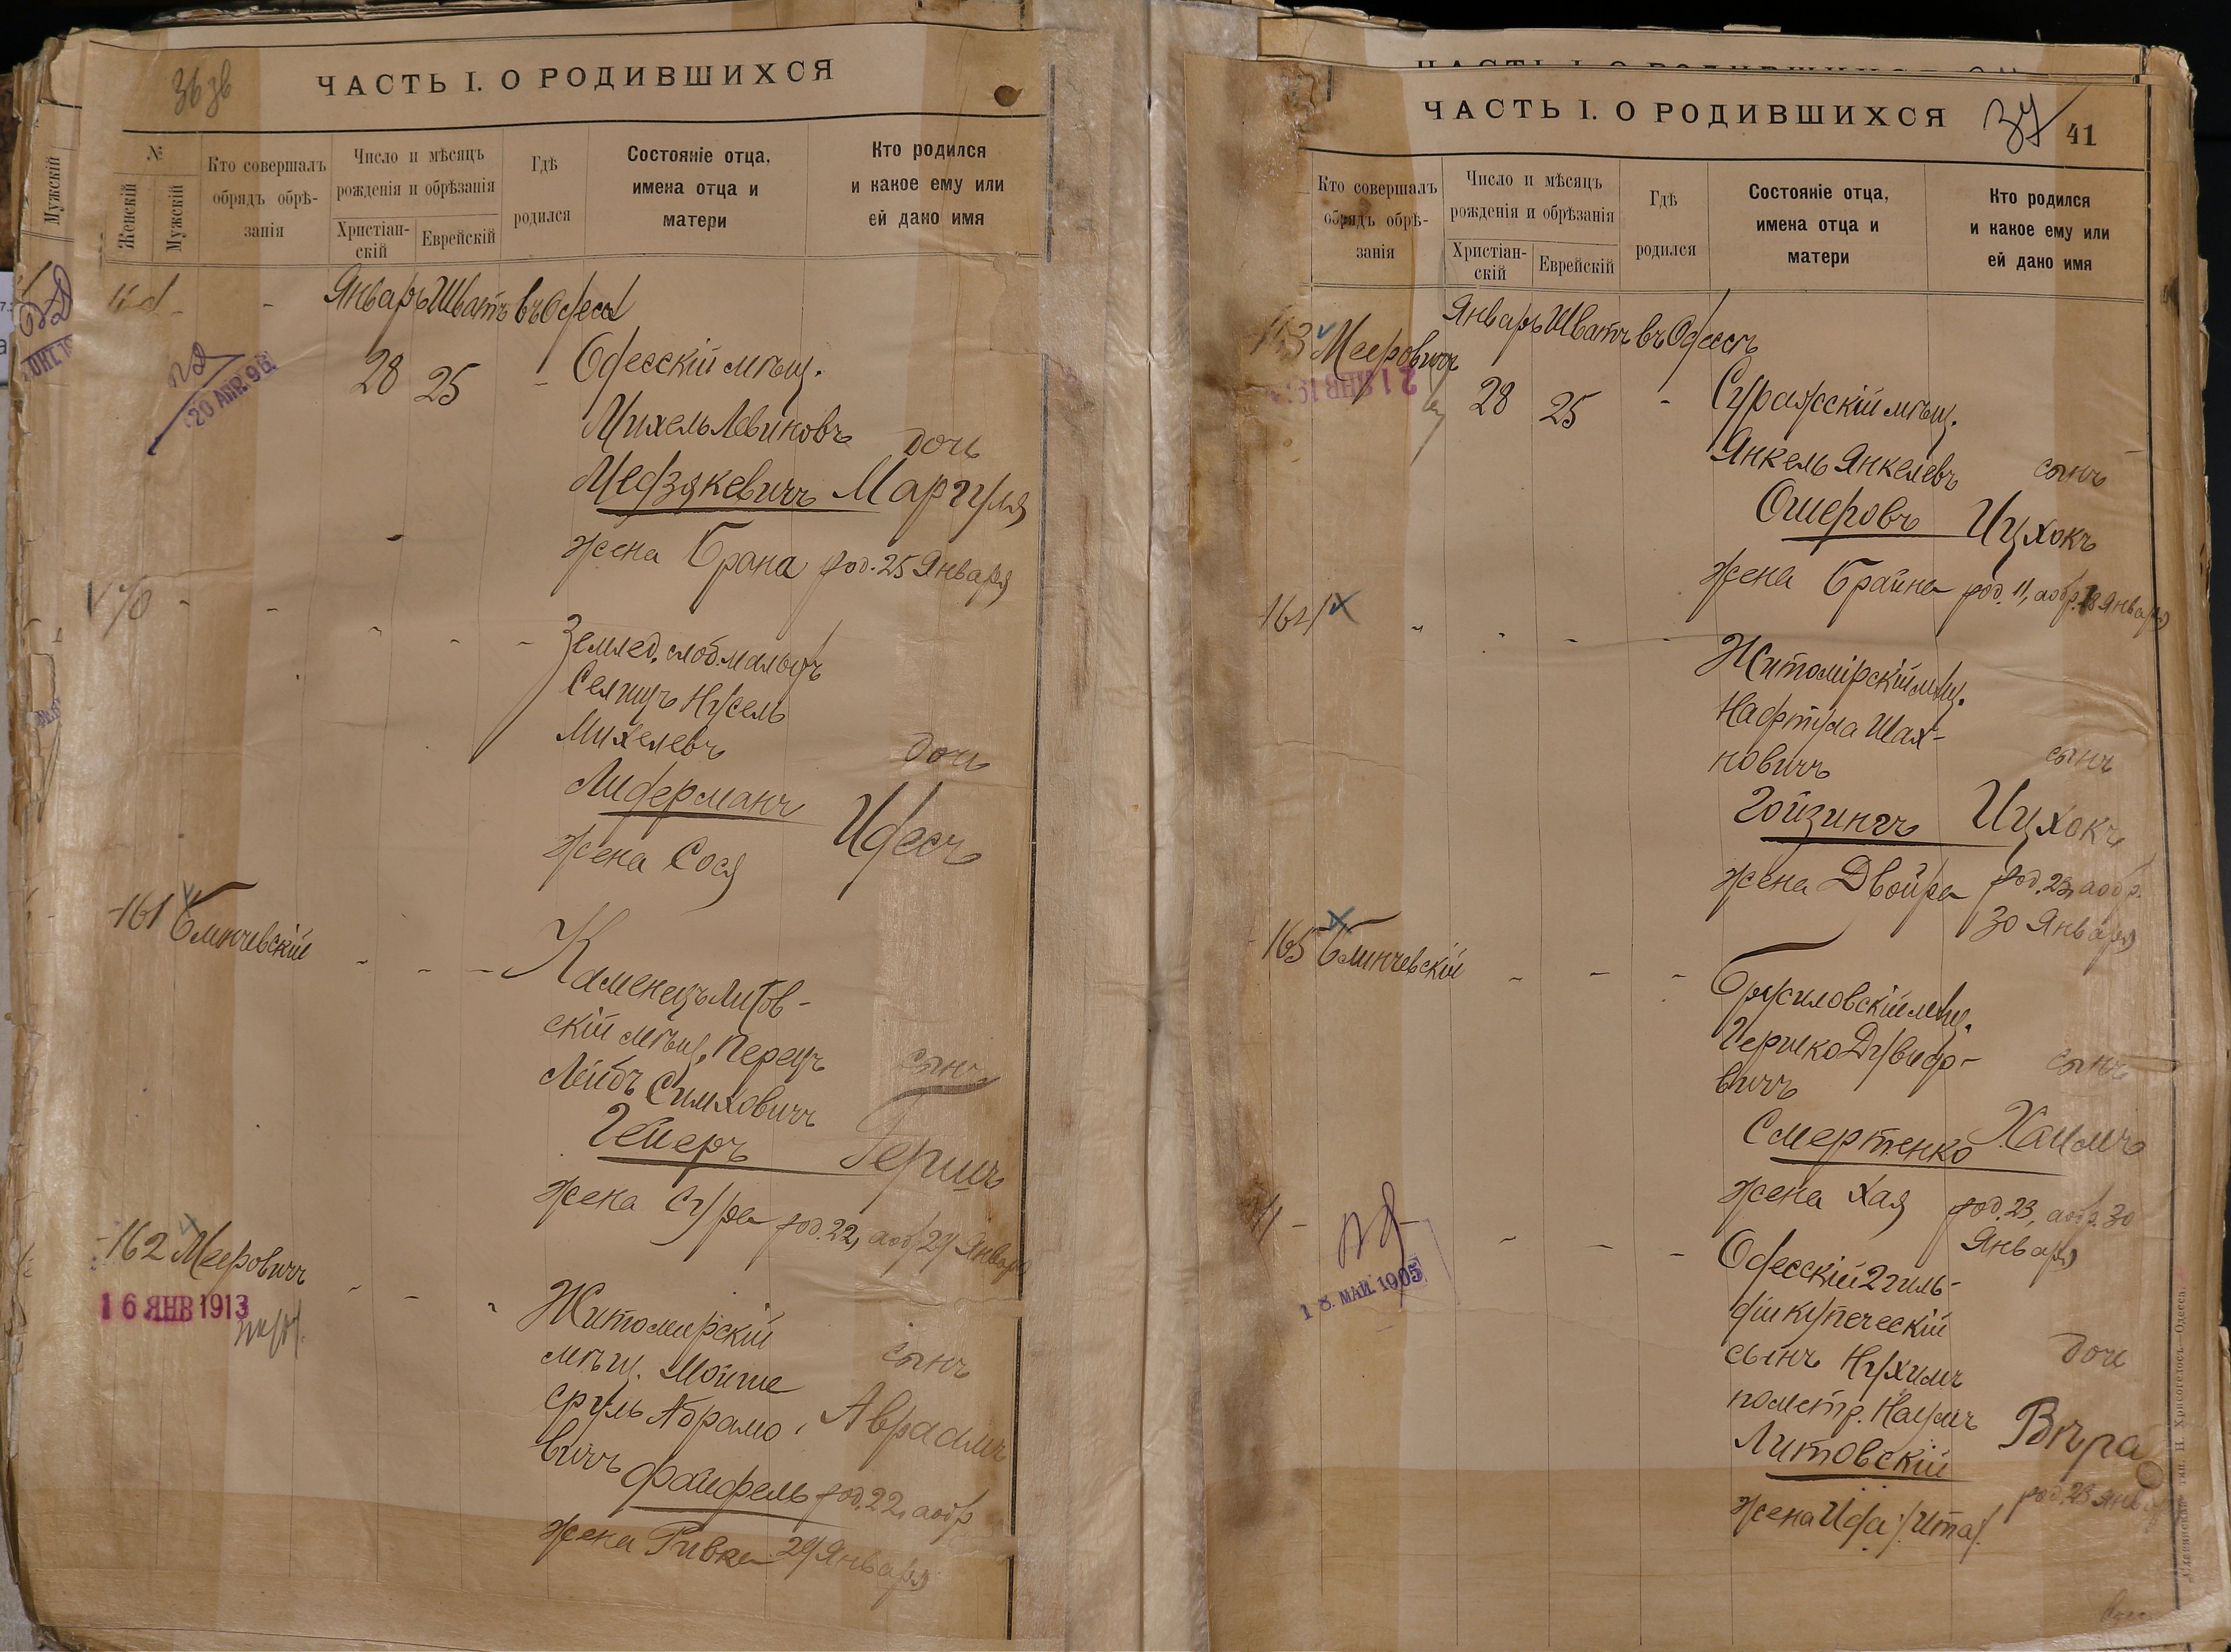 36 36
ЧАСТЬ I. О РОДИВШИХСЯ
Мужскій
№
Женскій
Мужскій
Кто совершалъ
обрядъ обрѣ-
занія
Число и мѣсяцъ
рожденія и обрѣзанія
Христіан-
скій
Еврейскій
Гдѣ
родился
Состояніе отца,
имена отца и
матери
Кто родился
и какое ему или
ей дано имя
Январь Шватъ въ Одессѣ
20 АПР. 96
28 25 - Одесскій мѣщ.
Михель Левиковъ
дочь
Медзякевичъ Маргуля
жена Брана род. 25 Января
Землед. слоб. малыхъ
Селищъ Нусель
Михелевъ
дочь
Лидерманъ
Идесъ
жена Сося
161 Блинчевскій
Каменецъ Литов-
скій мѣщ. Перецъ
сынъ
Лейбъ Симховичъ
Гейеръ Гершъ
жена Сура род. 22, а обр. 29 Января
162 Мееровичъ
16 ЯНВ 1913
Житомирскій
мѣщ. Мойше
сынъ
Сруль Абрамо-
Авраамъ
вичъ Файфель род. 22, а обр
жена Ривка 29 Января
ЧАСТЬ I. О РОДИВШИХСЯ
37
41
Кто совершалъ
обрядъ обрѣ-
занія
Число и мѣсяцъ
рожденія и обрѣзанія
Христіан-
скій
Еврейскій
Гдѣ
родился
Состояніе отца,
имена отца и
матери
Кто родился
и какое ему или
ей дано имя
Январь Шватъ въ Одессѣ
163 Мееровичъ
28 25 - Суражскій мѣщ.
Янкель Янкелевъ
сынъ
Ошеровъ Ицхокъ
жена Брайна род. 11, а обр. 18 Января
164
Житомірскій мѣщ.
Нафтула Шах-
новичъ
сынъ
Гойзингъ Ицхокъ
жена Двойра род. 23, а обр.
30 Января
165 Блинчевскій
Брусиловскій мѣщ.
Гершко Дувидо-
вичъ
сынъ
Смертенко Хаимъ
жена Хая род. 23, а обр. 30
Января
18. МАЙ. 1905
Одесскій 2 гиль-
діи купеческій
сынъ Нухимъ
дочь
по метр. Наумъ
Литовскій Вѣра
род. 23 Янв
жена Ида /Ита/.